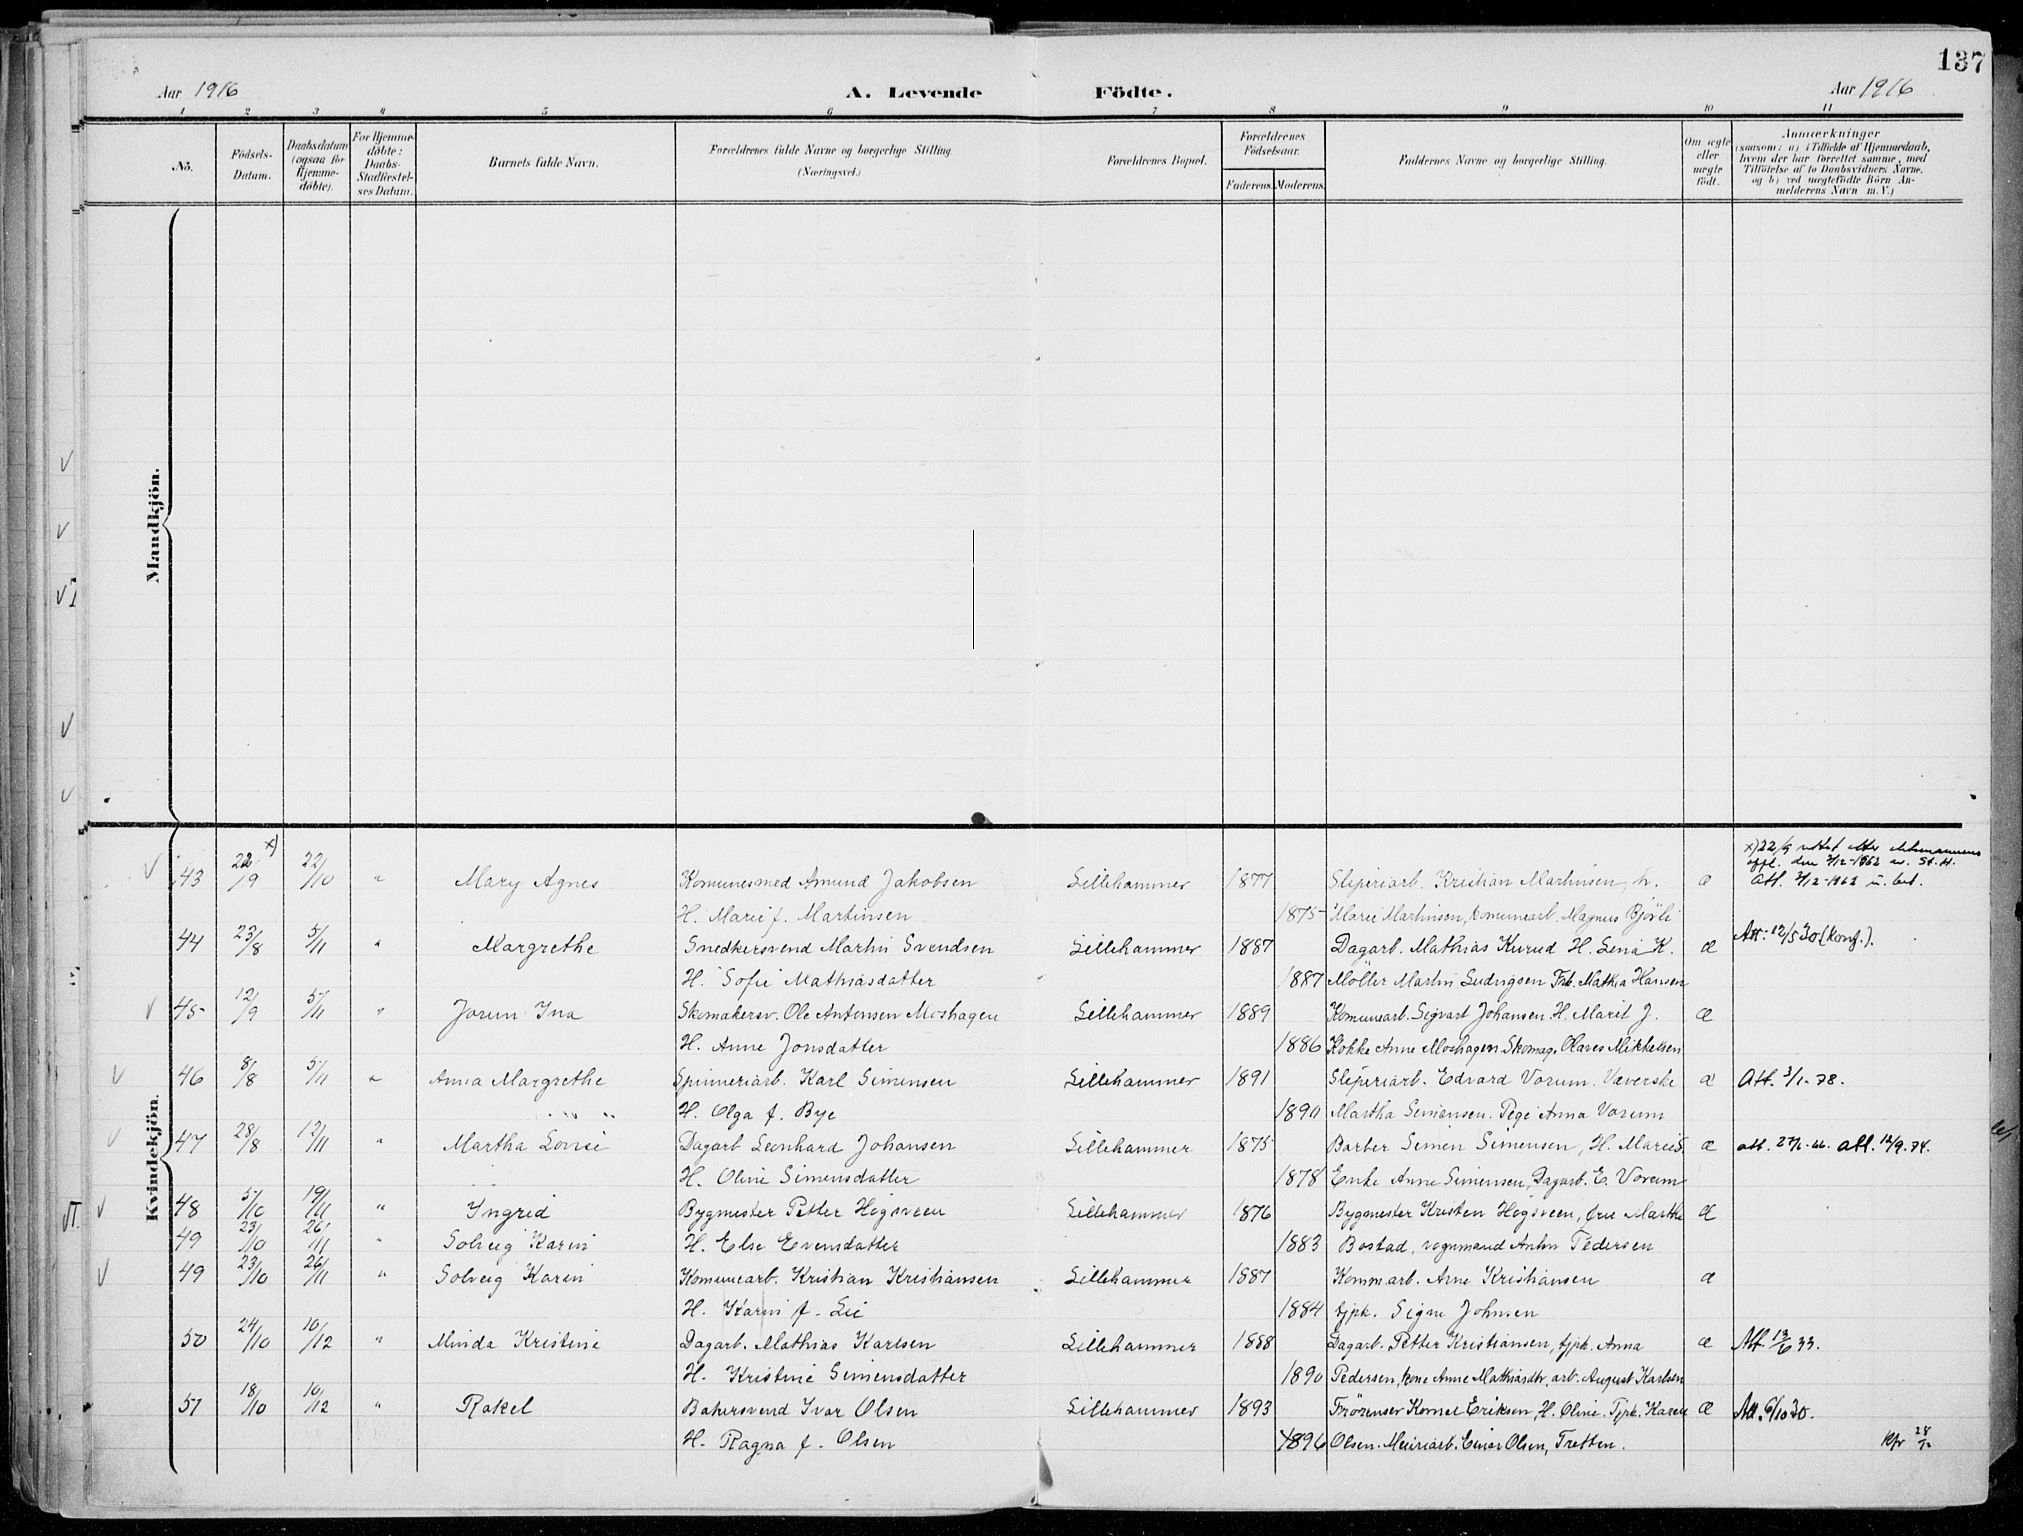 137
Aar 1916
A. Levende Födte.
Aar 1916
1 2 3 4 5 6 7 8 9 10 11
Nö.
Födsels-Datum.
Daabsdatum (ogsaa for Hjemme-döbte).
For Hjemme-döbte: Daabs-Stadfæstelses Datum.
Barnets fulde Navn.
Forældrenes fulde Navne og borgerlige Stilling (Næringsvei.)
Forældrenes Bopæl.
Forældrenes Födselsaar.
Faderens. Moderens.
Faddernes Navne og borgerlige Stilling.
Om ægte eller uægte födt.
Anmærkninger
(saasom: a) i Tilfælde af Hjemmedaab, hvem der har forrettet samme, med Tilföielse af to Daabsvidners Navne, og b) ved uægtefödte Börn Anmelderens Navn m. V.)
Mandkjön.
Kvindekjön.
x) 22/9 rettet etter
oppl. den 3/12-1962 av St. H.
43 22/9 x) 22/10 " Mary Agnes Komunesmed Amund Jakobsen Lillehammer 1877 Sliperiarb. Kristian Martinsen, h. æ Att. 3/12-1962 u. bet.
H. Marie f. Martinsen 1875 Marie Martinsen, komunearb. Magnus Bjørli
44 23/8 5/11 " Margrethe Snedkersvend Martin Svendsen Lillehammer 1887 Dagarb. Mathias Kurud H. Lina K. æ Att: 12/5 30 (konf.).
H. Sofie Mathiasdatter 1887 Möller Martin Ludvigsen Frk. Mathea Hansen
45 12/9 5/11 " Jorun Ina Skomakersv. Ole Antonsen Moshagen Lillehammer 1889 Komunearb. Sigvart Johansen H. Marit J. æ
H. Anne Jonsdatter 1886 Kokke Anne Moshagen Skomag. Olaves Mikkelsen
46 8/8 5/11 " Anna Margrethe Spinneriarb. Karl Simensen Lillehammer 1891 Sliperiarb. Edvard Vorum. Væverske æ Att. 3/1-78.
H. Olga f. Bye 1890 Martha Simensen. Pige Anna Vorum
47 28/8 12/11 " Martha Lovise Dagarb Leonhard Johansen Lillehammer 1875 Barber Simen Simensen, H. Marie S. æ att. 27/1-66. att. 12/9.74.
H. Oline Simensdatter 1878 Enke Anne Simensen, Dagarb. E. Vorum
48 5/10 19/11 " Ingrid Bygmester Petter Høgsveen Lillehammer 1876 Bygmester Kristen Høgsveen, fru Marthe æ
49 23/10 26/11 " Solveig Karin H. Else Evensdatter 1883 Bostad, vognmand Anton Pedersen
49 23/10 26/11 " Solveig Karin Komunearb. Kristian Kristiansen Lillehammer 1887 Kommarb. Arne Kristiansen æ
H. Karin f. Lie 1884 tjpk. Signe Johnsen
50 24/10 10/12 " Minda Kristine Dagarb. Mathias Karlsen Lillehammer 1888 Dagarb. Petter Kristiansen, tjpk. Anna æ Att. 13/6 33.
H. Kristine Simensdatter 1890 Pedersen, kone Anne Mathiasdtr. arb. August Karlsen
51 18/10 10/12 " Rakel Bakersvend Ivar Olsen Lillehammer 1893 Kornel Eriksen, H. Oline. Tjpk. Karen æ Att. 6/10 30.
H. Ragna f. Olsen 1896 Olsen. Meieriarb. Einar Olsen, Tretten.